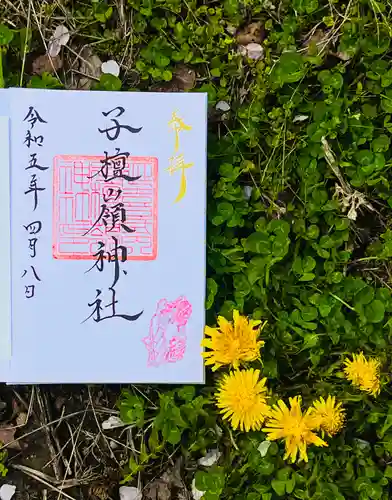 奉拝
子檀嶺神社
令和五年四月八日